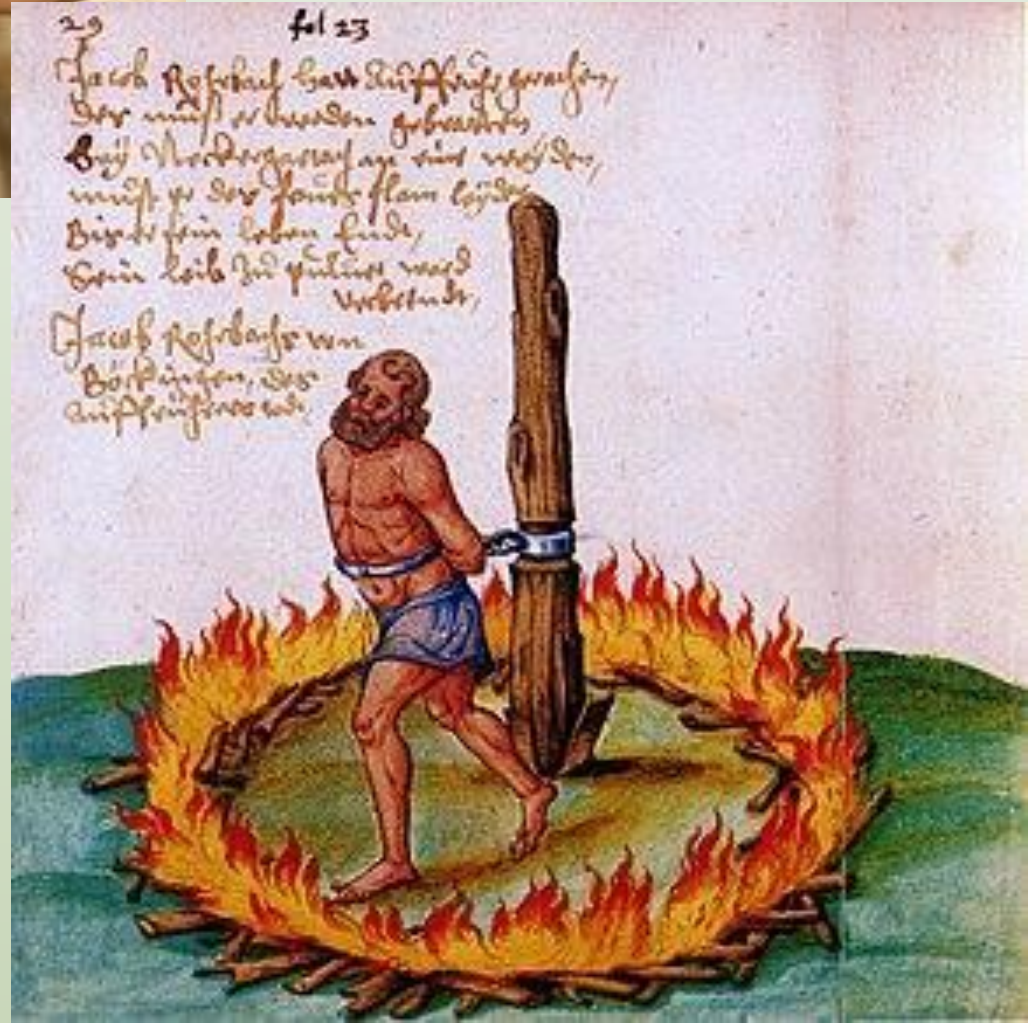 29 fol 23
Jacob Rohrbach hatt Auffruhr gerathen,
der must er werden gebratten
Bey Neckergartach an eine weyden,
must er des feuers flam leyden
Bis er sein leben Endt,
Sein leib zu puluer ward
verbrendt,
Jacob Rohrbachs von
Böckingen, des
Auffrührers todt,